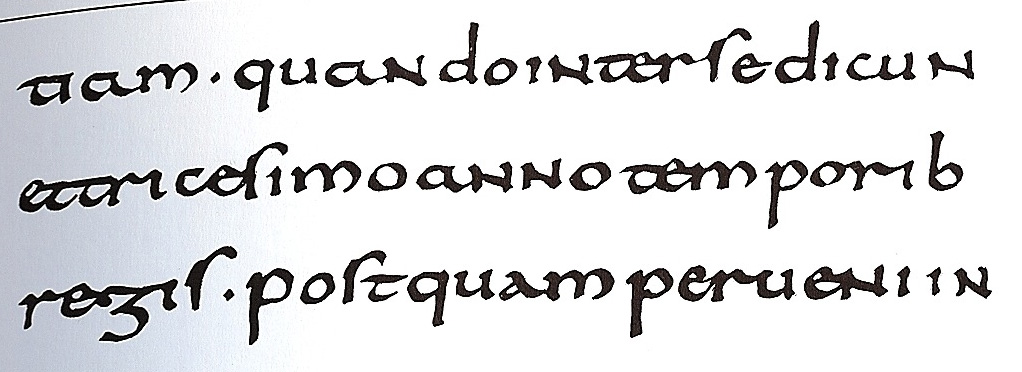 tiam. quandointerſedicun
ettriceſimoannotemporib
regiſ. poſtquamperueniin